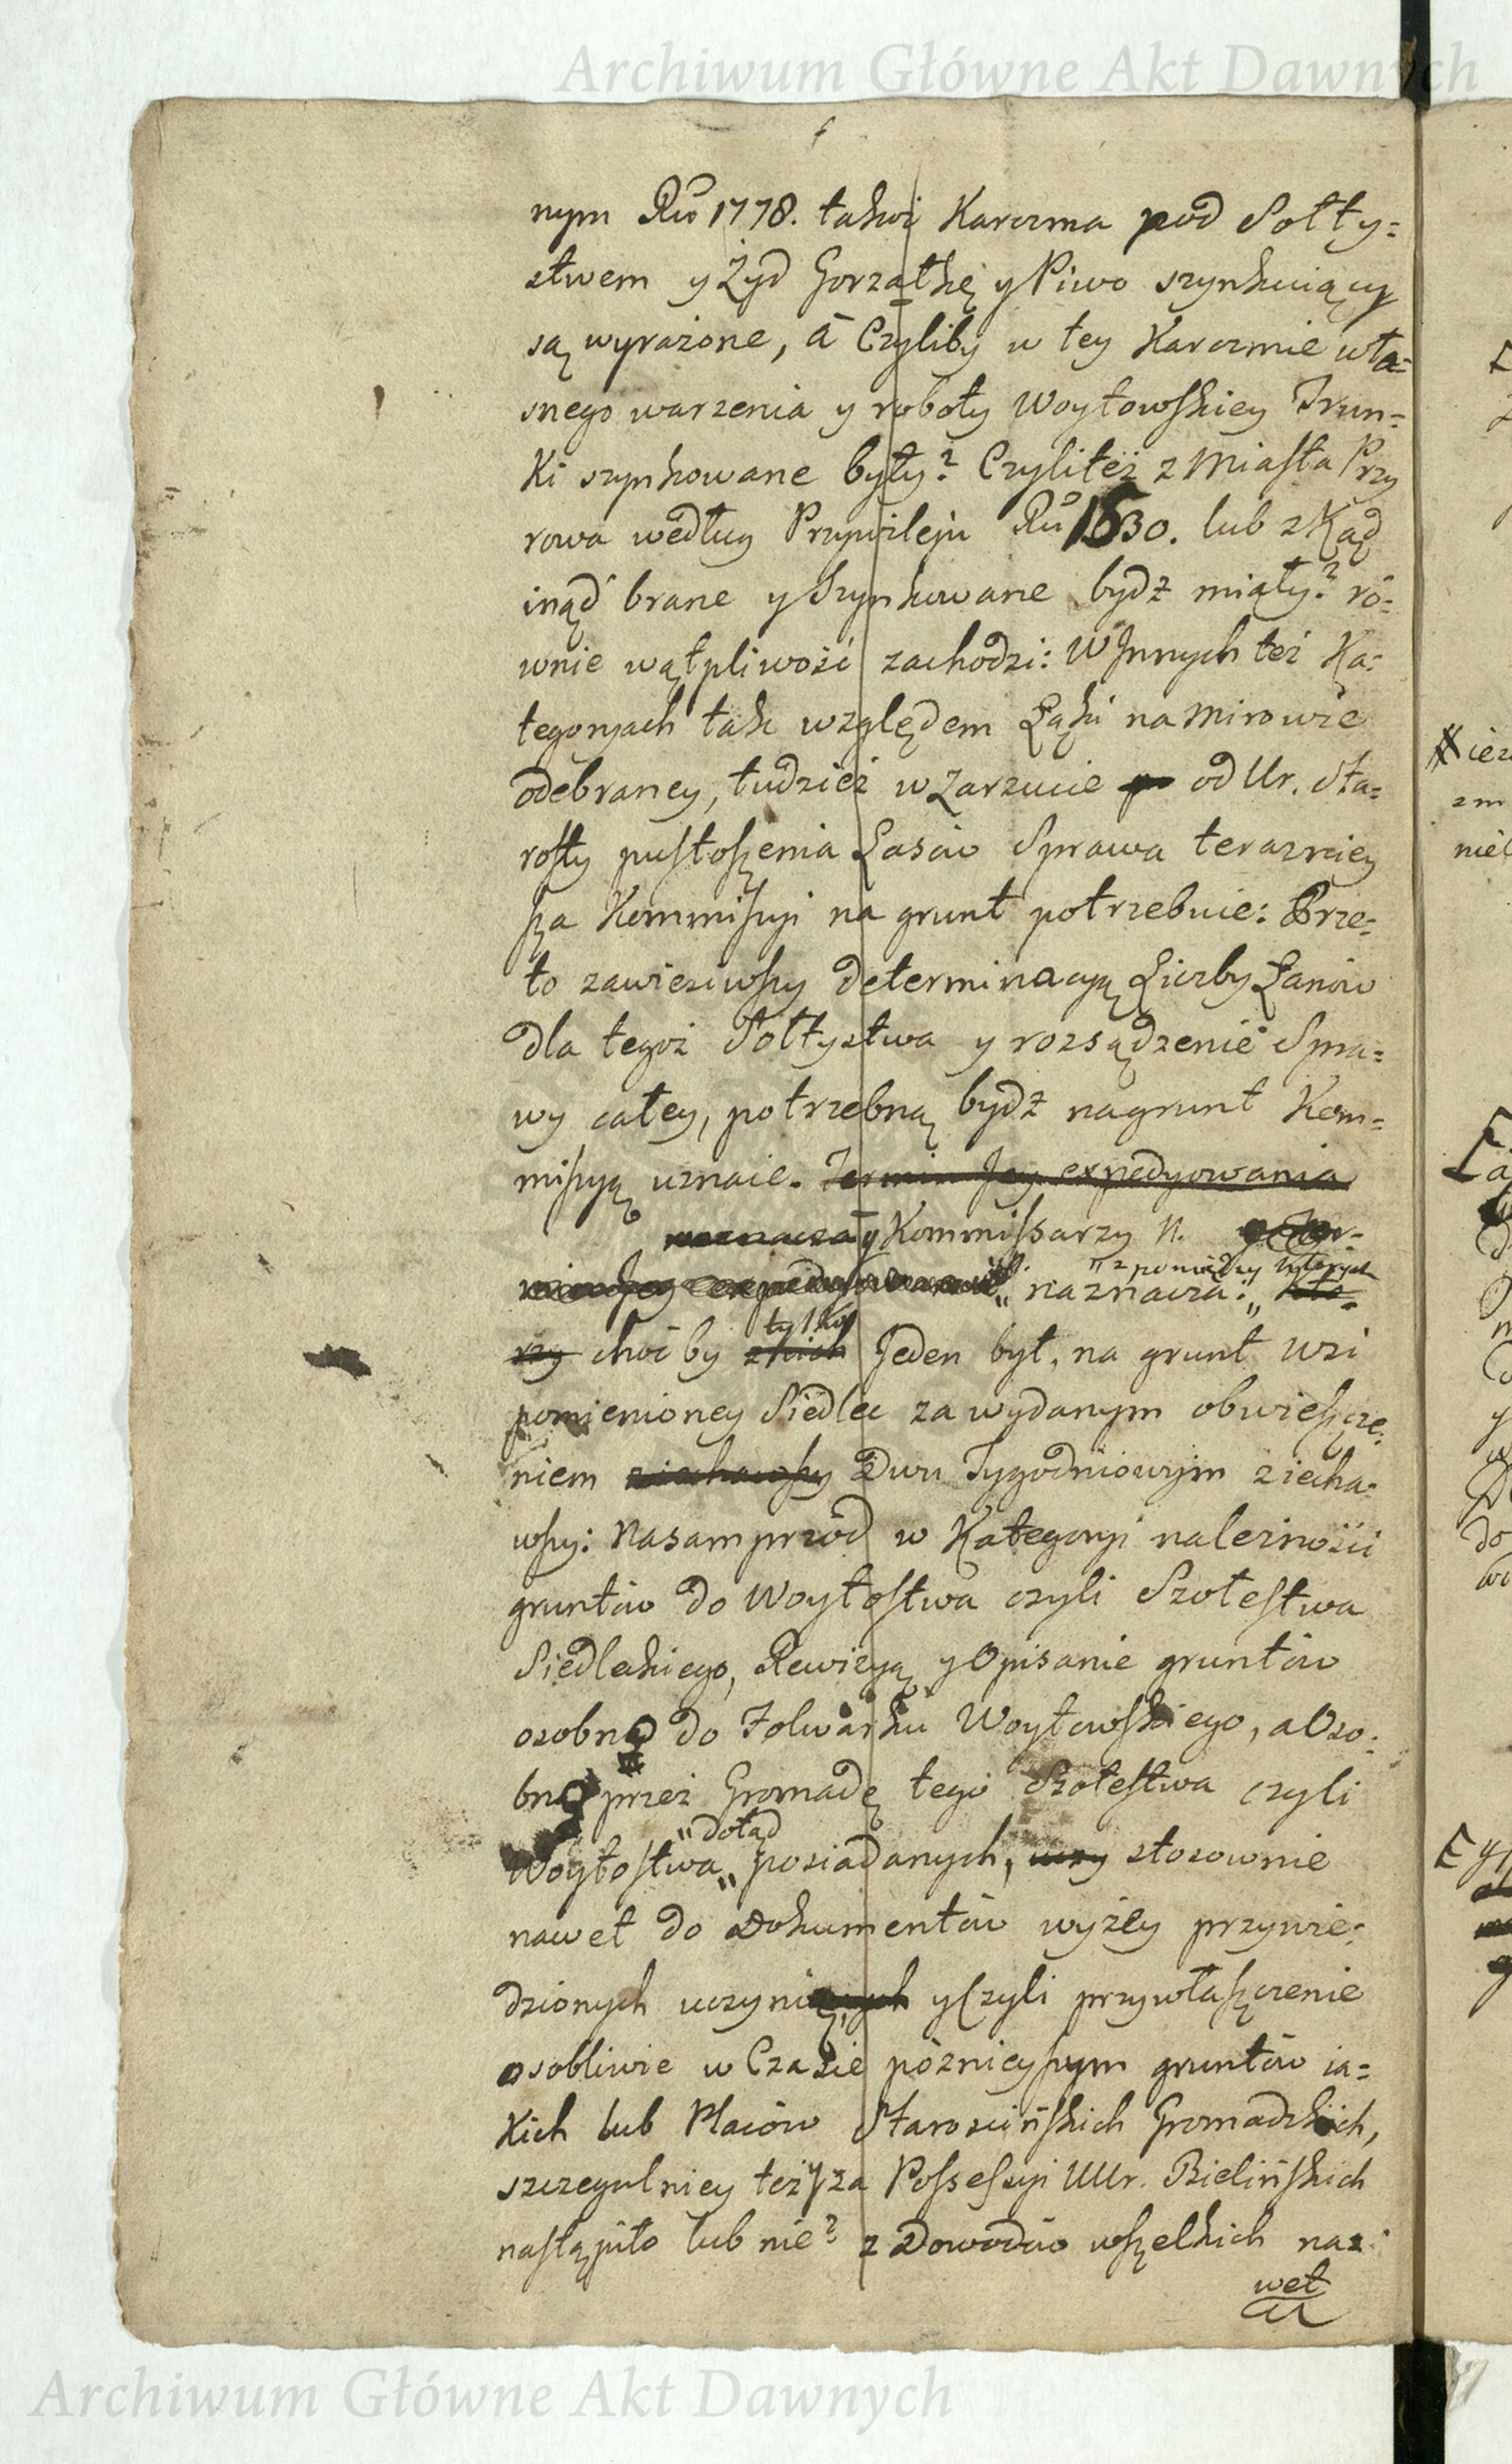 Archiwum Główne Akt Dawnych
nym Ru 1778. takoż Karczma pod Sołty=
stwem y Żyd Gorzałkę y Piwo szynkuiący
są wyrażone, a Czyliby w tey Karczmie wła=
snego warzenia y roboty Woytowskiey Trun=
ki szynkowane były? Czyliteż z Miasta Przy
rowa według Przywileju Ru 1630. lub zkąd
inąd brane y szynkowane bydź miały? ró=
wnie wątpliwość zachodzi: W Jnnych też Ka=
tegoryach tak względem Łąki na Mirowie
odebraney, tudzież w Zarzucie od Ur. Sta=
rosty pustoszenia Lasów Sprawa terazniey
sza Kommissyi na grunt potrzebuie: Prze=
to zawiesiwszy determinacyą Liczby Łanów
dla tegoż Sołtystwa y rozsądzenie Spra=
wy całey, potrzebną bydź na grunt Kom=
missyą uznaie. Termin Jey expedyowania
naznacza y Kommissarzy N.
z pomiędzy których
naznacza: Któ=
tylko
rzy choćby z nich Jeden był, na grunt wsi
pomienioney Siedlec za wydanym obwieszcze=
niem ziechawszy Dwu Tygodniowym ziecha=
wszy: Nasamprzód w Kategoryi należności
gruntów do Woytostwa czyli Szołestwa
Siedleckiego, Rewizyą y Opisanie gruntów
osobno do Folwarku Woytowskiego, a Oso=
bno przez Gromadę tego Szołestwa czyli
dotąd
Woytostwa posiadanych, stosownie
nawet do Dokumentów wyżey przywie=
dzionych uczyni y Czyli przywłaszczenie
osobliwie w Czasie póznieyszym gruntów ia=
kich lub Placów Starościńskich Gromadzkich,
szczegulniey też za Possessyi UUr. Bielińskich
nastąpiło lub nie? z Dowodów wszelkich na=
wet
Archiwum Główne Akt Dawnych